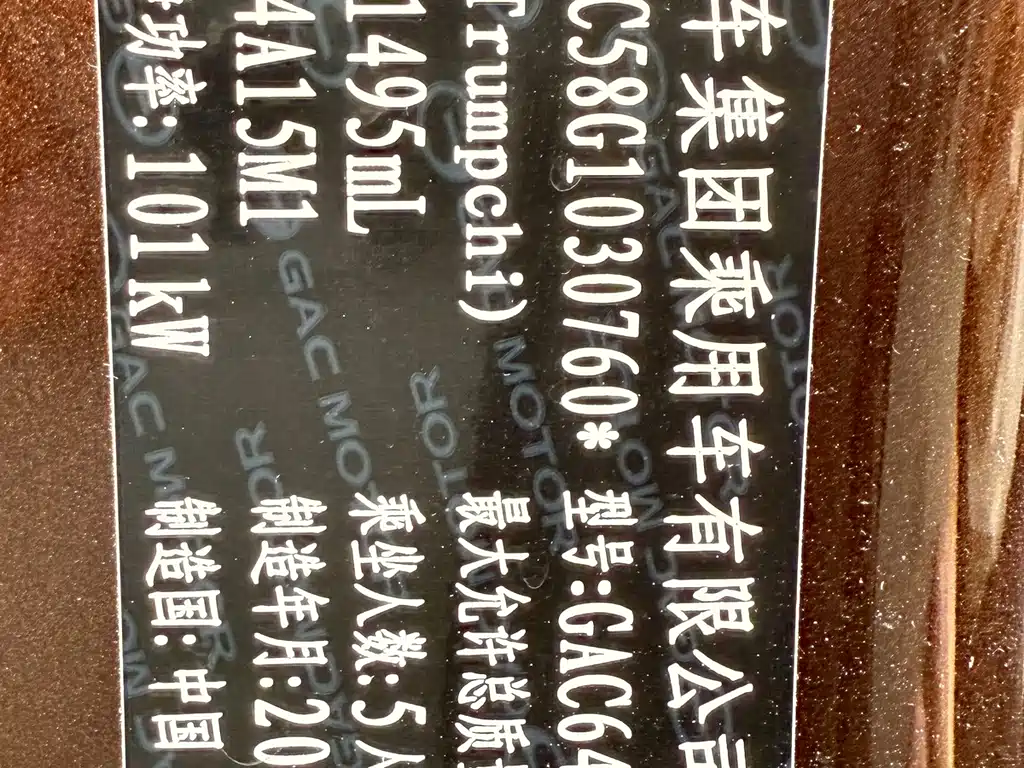 车集团乘用车有限公司
C58G1030760* 型号:GAC64
Trumpchi) 最大允许总质
1495mL 乘坐人数:5人
4A15M1 制造年月:20
功率:101kW 制造国:中国
GAC MOTOR